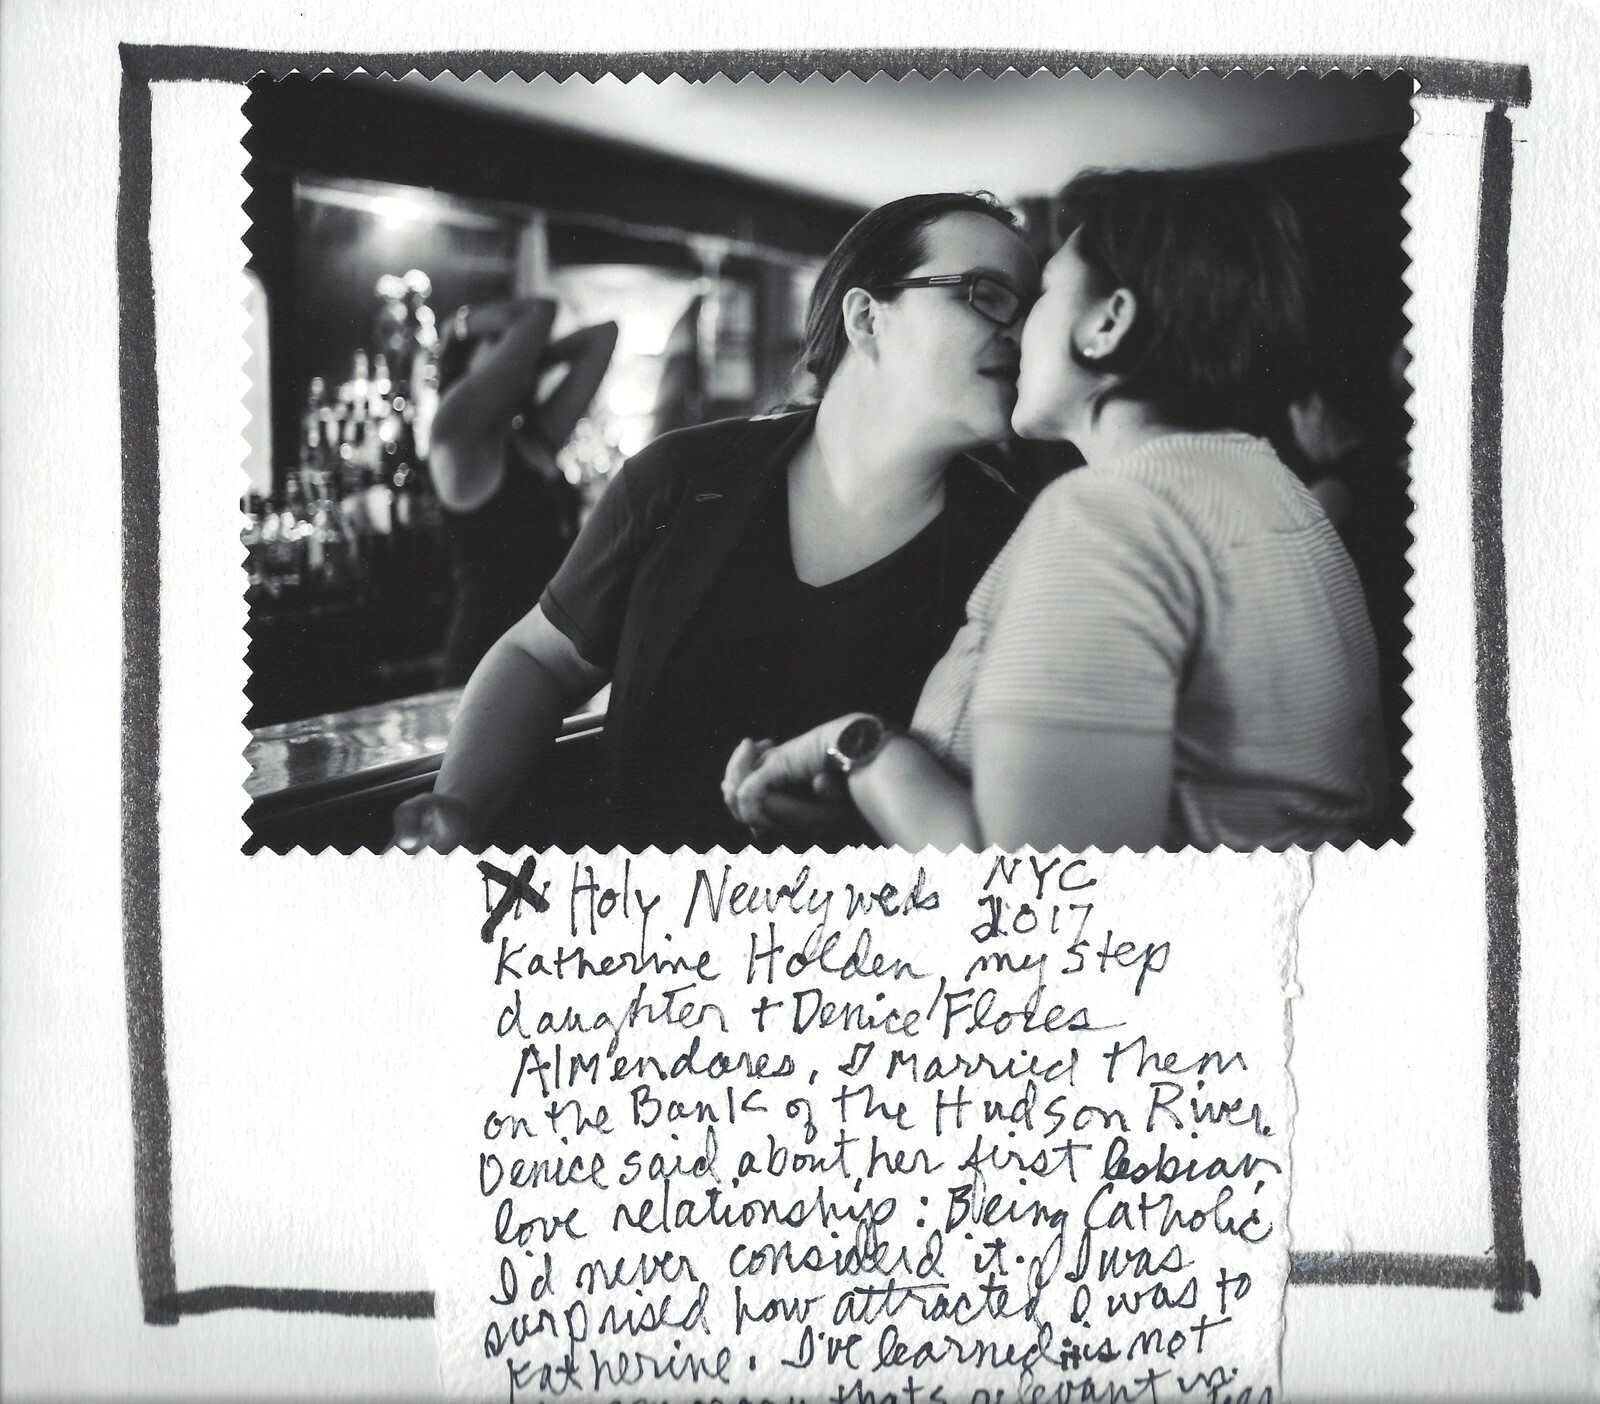 Holy Newlyweds NYC
2017
Katherine Holden, my step
daughter + Denice Flores
Almendares, I married them
on the Bank of the Hudson River.
Denice said about her first lesbian
love relationship: Being Catholic
I'd never considerd it. I was
surprised how attracted I was to
Katherine. I've learned is not
thats relevant in